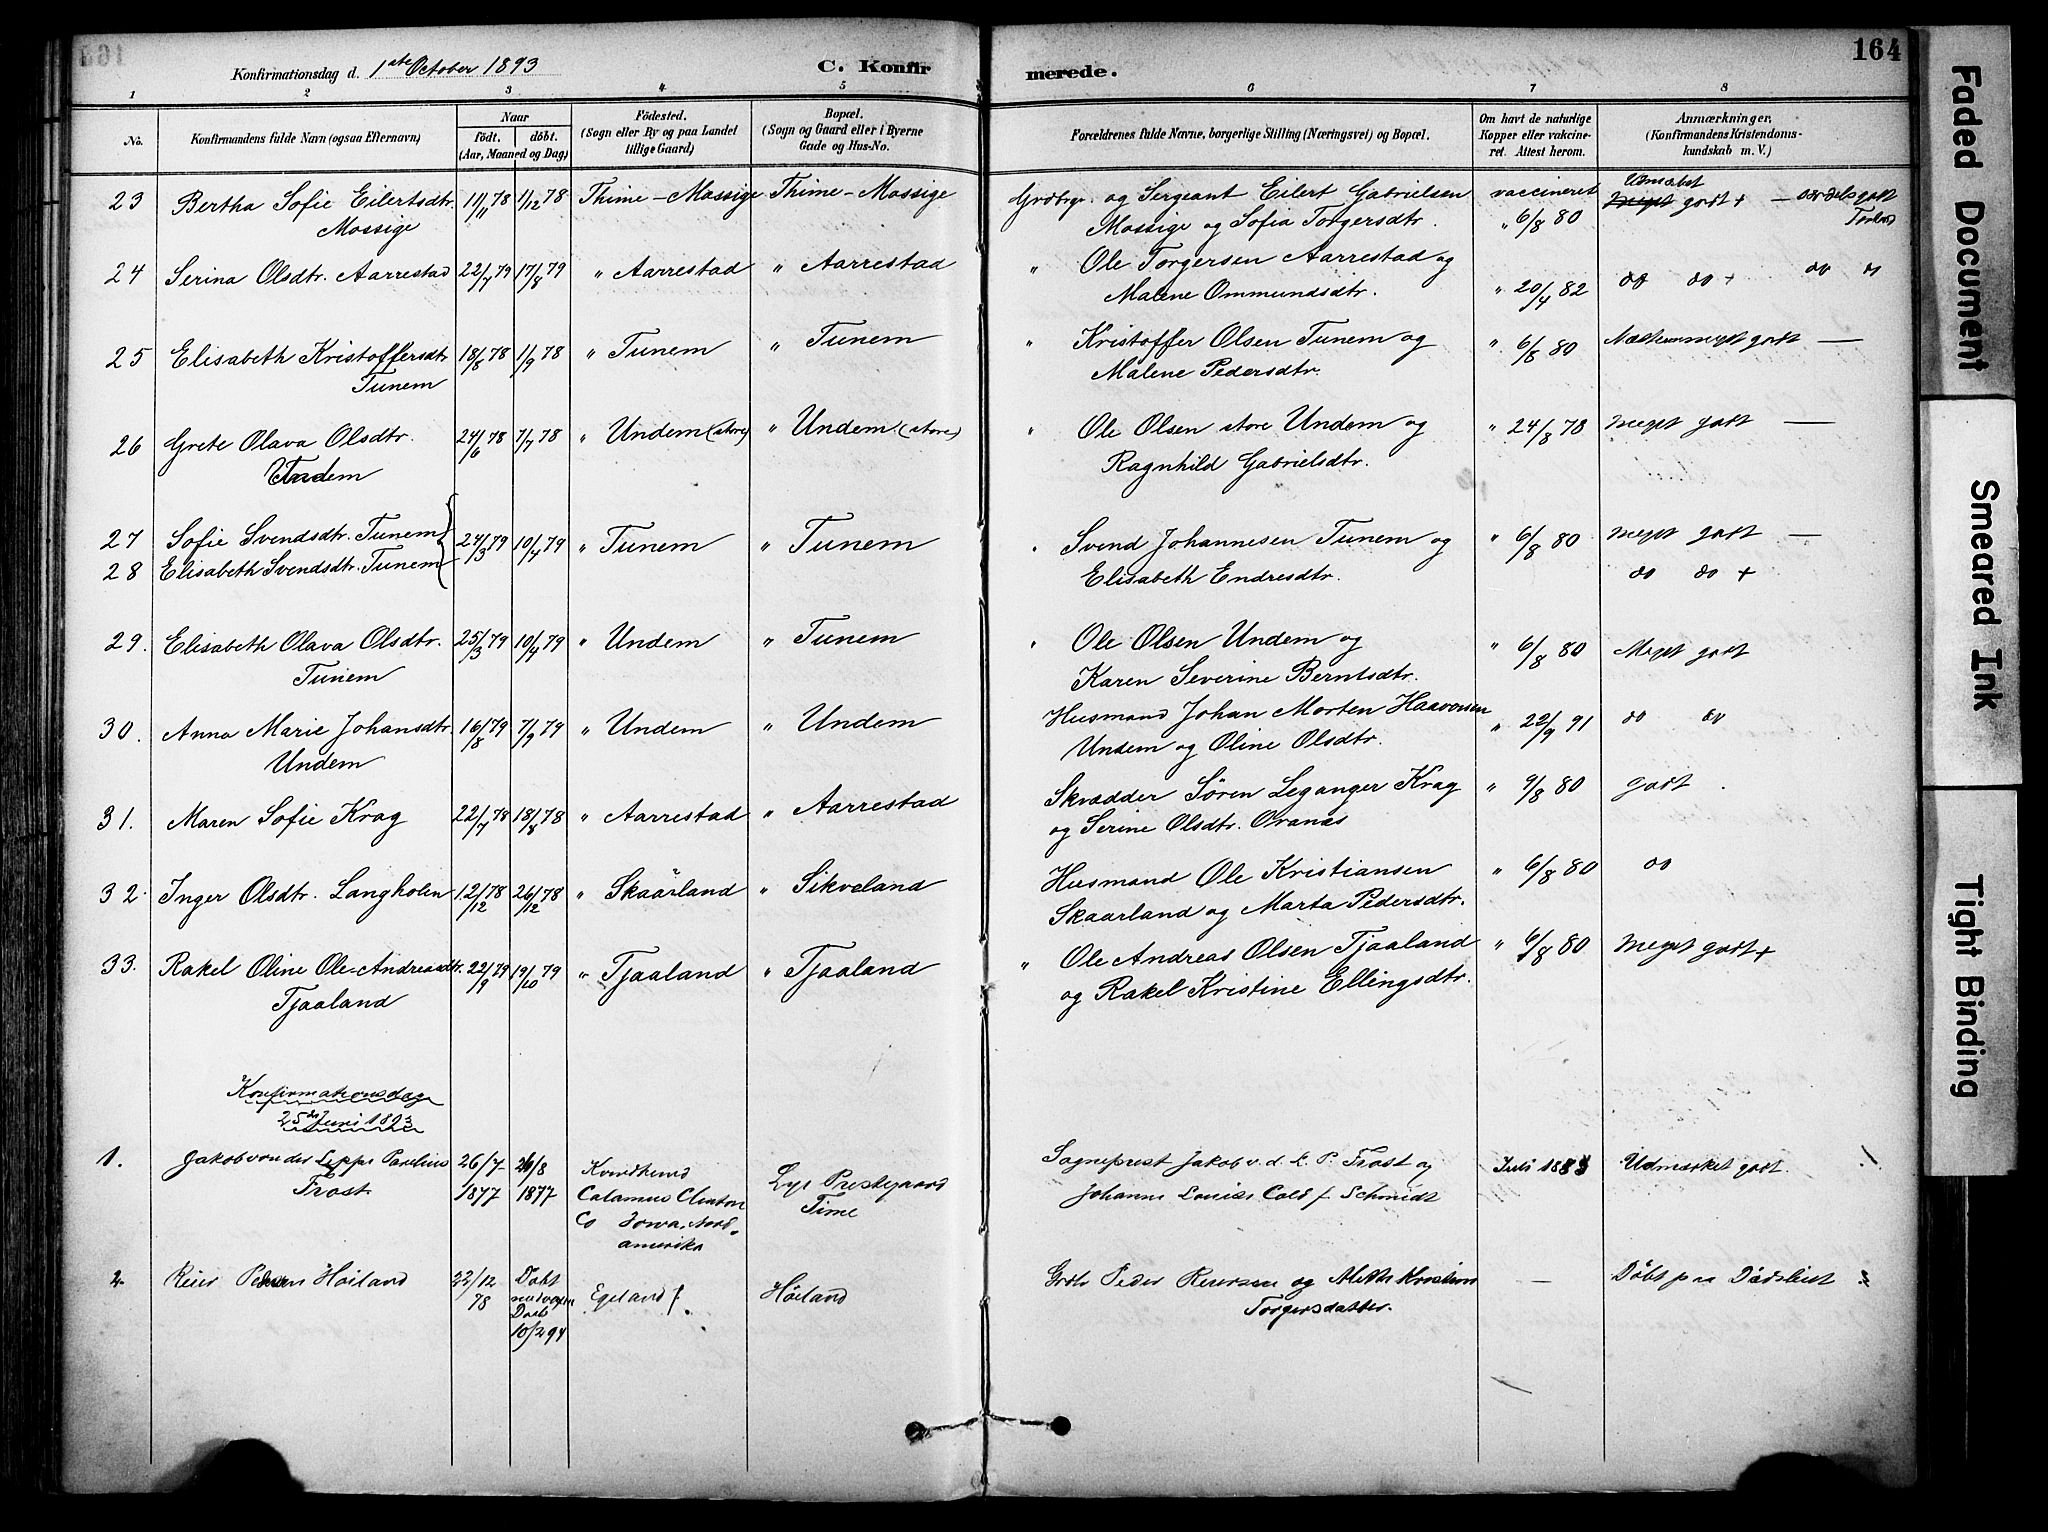 164
Konfirmationsdag d. 1ste October 1893
C. Konfir merede.
1 2 3 4 5 6 7 8
No.
Konfirmandens fulde Navn (ogsaa Efternavn)
Naar
født. døbt.
(Aar, Maaned og Dag)
Fødested.
(Sogn eller By og paa Landet
tillige Gaard)
Bopæl.
(Sogn og Gaard eller i Byerne
Gade og Hus-No.
Forældrenes fulde Navne, borgerlige Stilling (Næringsvei) og Bopæl.
Om havt de naturlige
Kopper eller vakcine-
ret. Attest herom.
Anmærkninger.
(Konfirmandens Kristendoms-
kundskab m. V.)
23 Bertha Sofie Eilertsdtr. 11/11 78 1/12 78 Thime - Mossige Thime - Mossige Grdbrgr. og Sergeant Eilert Gabrielsen vaccineret godt +
Mossige Mossige og Sofia Torgersdtr. " 6/8 80
24 Serina Olsdtr. Aarrestad 22/7 79 17/8 79 " Aarrestad " Aarrestad " Ole Torgersen Aarrestad og
Malene Ommundsdtr. " 20/4 82 do do + do do
25 Elisabeth Kristoffersdtr 18/8 78 1/9 78 " Tunem " Tunem " Kristoffer Olsen Tunem og " 6/8 80 Næsten meget godt —
Tunem Malene Pedersdtr.
26 Grete Olava Olsdtr. 24/6 78 7/7 78 " Undem (store) " Undem (store) " Ole Olsen store Undem og " 24/8 78 Meget godt —
Undem Ragnhild Gabrielsdtr.
27 Sofie Svendsdtr. Tunem 24/3 79 10/4 79 " Tunem " Tunem " Svend Johannesen Tunem og " 6/8 80 Meget godt —
28 Elisabeth Svendsdtr. Tunem Elisabeth Endresdtr. do do +
29. Elisabeth Olava Olsdtr. 25/3 79 10/4 79 " Undem " Tunem " Ole Olsen Undem og " 6/8 80 Meget godt
Tunem Karen Severine Berntsdtr.
30. Anna Marie Johansdtr. 16/8 79 7/9 79 " Undem " Undem Husmand Johan Morten Haavorsen " 22/9 91 do do
Undem Undem og Oline Olsdtr.
31. Maren Sofie Krag 22/7 78 18/8 78 " Aarrestad " Aarrestad Skrædder Søren Leganger Krag " 9/8 80 godt.
og Serine Olsdtr. Oranæs
32. Inger Olsdtr. Langholen 12/12 78 26/12 78 " Skaarland " Sikveland Husmand Ole Kristiansen " 6/8 80 do
Skaarland og Marta Pedersdtr.
33. Rakel Oline Ole-Andreasdtr. 22/9 79 19/10 79 " Tjaaland " Tjaaland " Ole Andreas Olsen Tjaaland " 6/8 80 Meget godt +
Tjaaland og Rakel Kristine Ellingsdtr.
Konfirmationsdag
25de Juni 1893
1. Jakob von der Lippe Parelius 26/7 26/8 Sogneprest Jakob v. d. L. P. Frost og Juli 1883 Udmærket godt.
Frost 1877 1877 Calamus Clinton Lye Prestegaard Johanne Louise Cold f. Schmidt
Co Iowa. Nord- Time
amerika
2. Reier Pedersen Høiland 22/12 Døbt Egeland f. Høiland Grdb Peder Reiersen og — Døbt paa
78 Torgersdatter.
Daab
10/2 94
Faded Document
Smeared Ink
Tight Binding